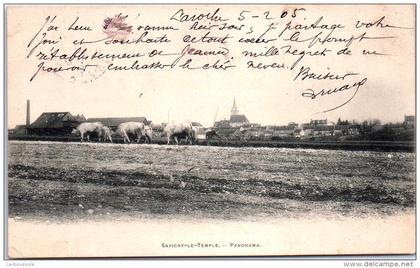 Laroche 5-2-05
J'ai reçu d'Yvonne hier soir, je partage votre
joie et souhaite de tout cœur le prompt
rétablissement de Jeanne mille regrets de ne
pouvoir embrasser le cher neveu.
Baisers
SAVIGNY-LE-TEMPLE. — PANORAMA.
La-boussole
www.delcampe.net